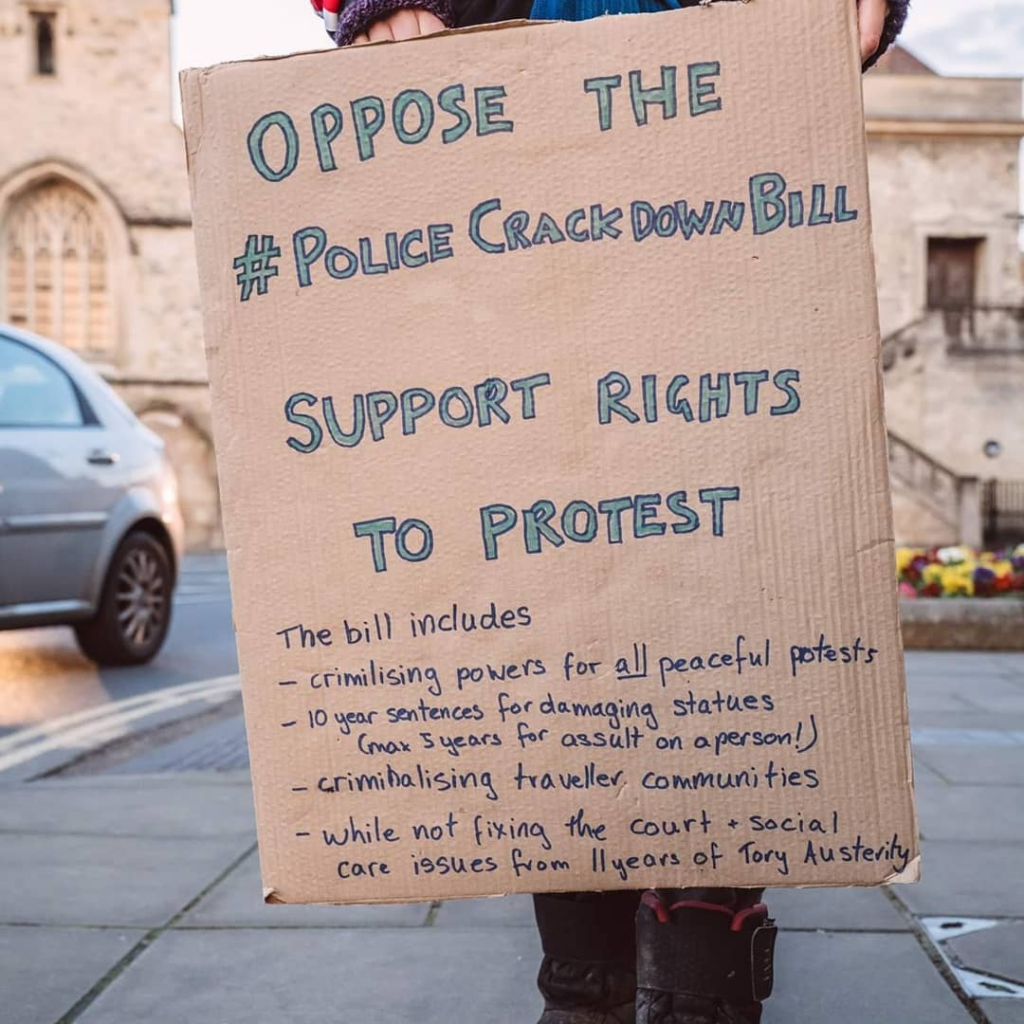 OPPOSE THE
#POLICE CRACKDOWN BILL
SUPPORT RIGHTS
TO PROTEST
The bill includes
- crimilising powers for all peaceful potests
- 10 year sentences for damaging statues
(max 5 years for assult on a person!)
- criminalising traveller communities
- while not fixing the court + social
care issues from 11 years of Tory Austerity